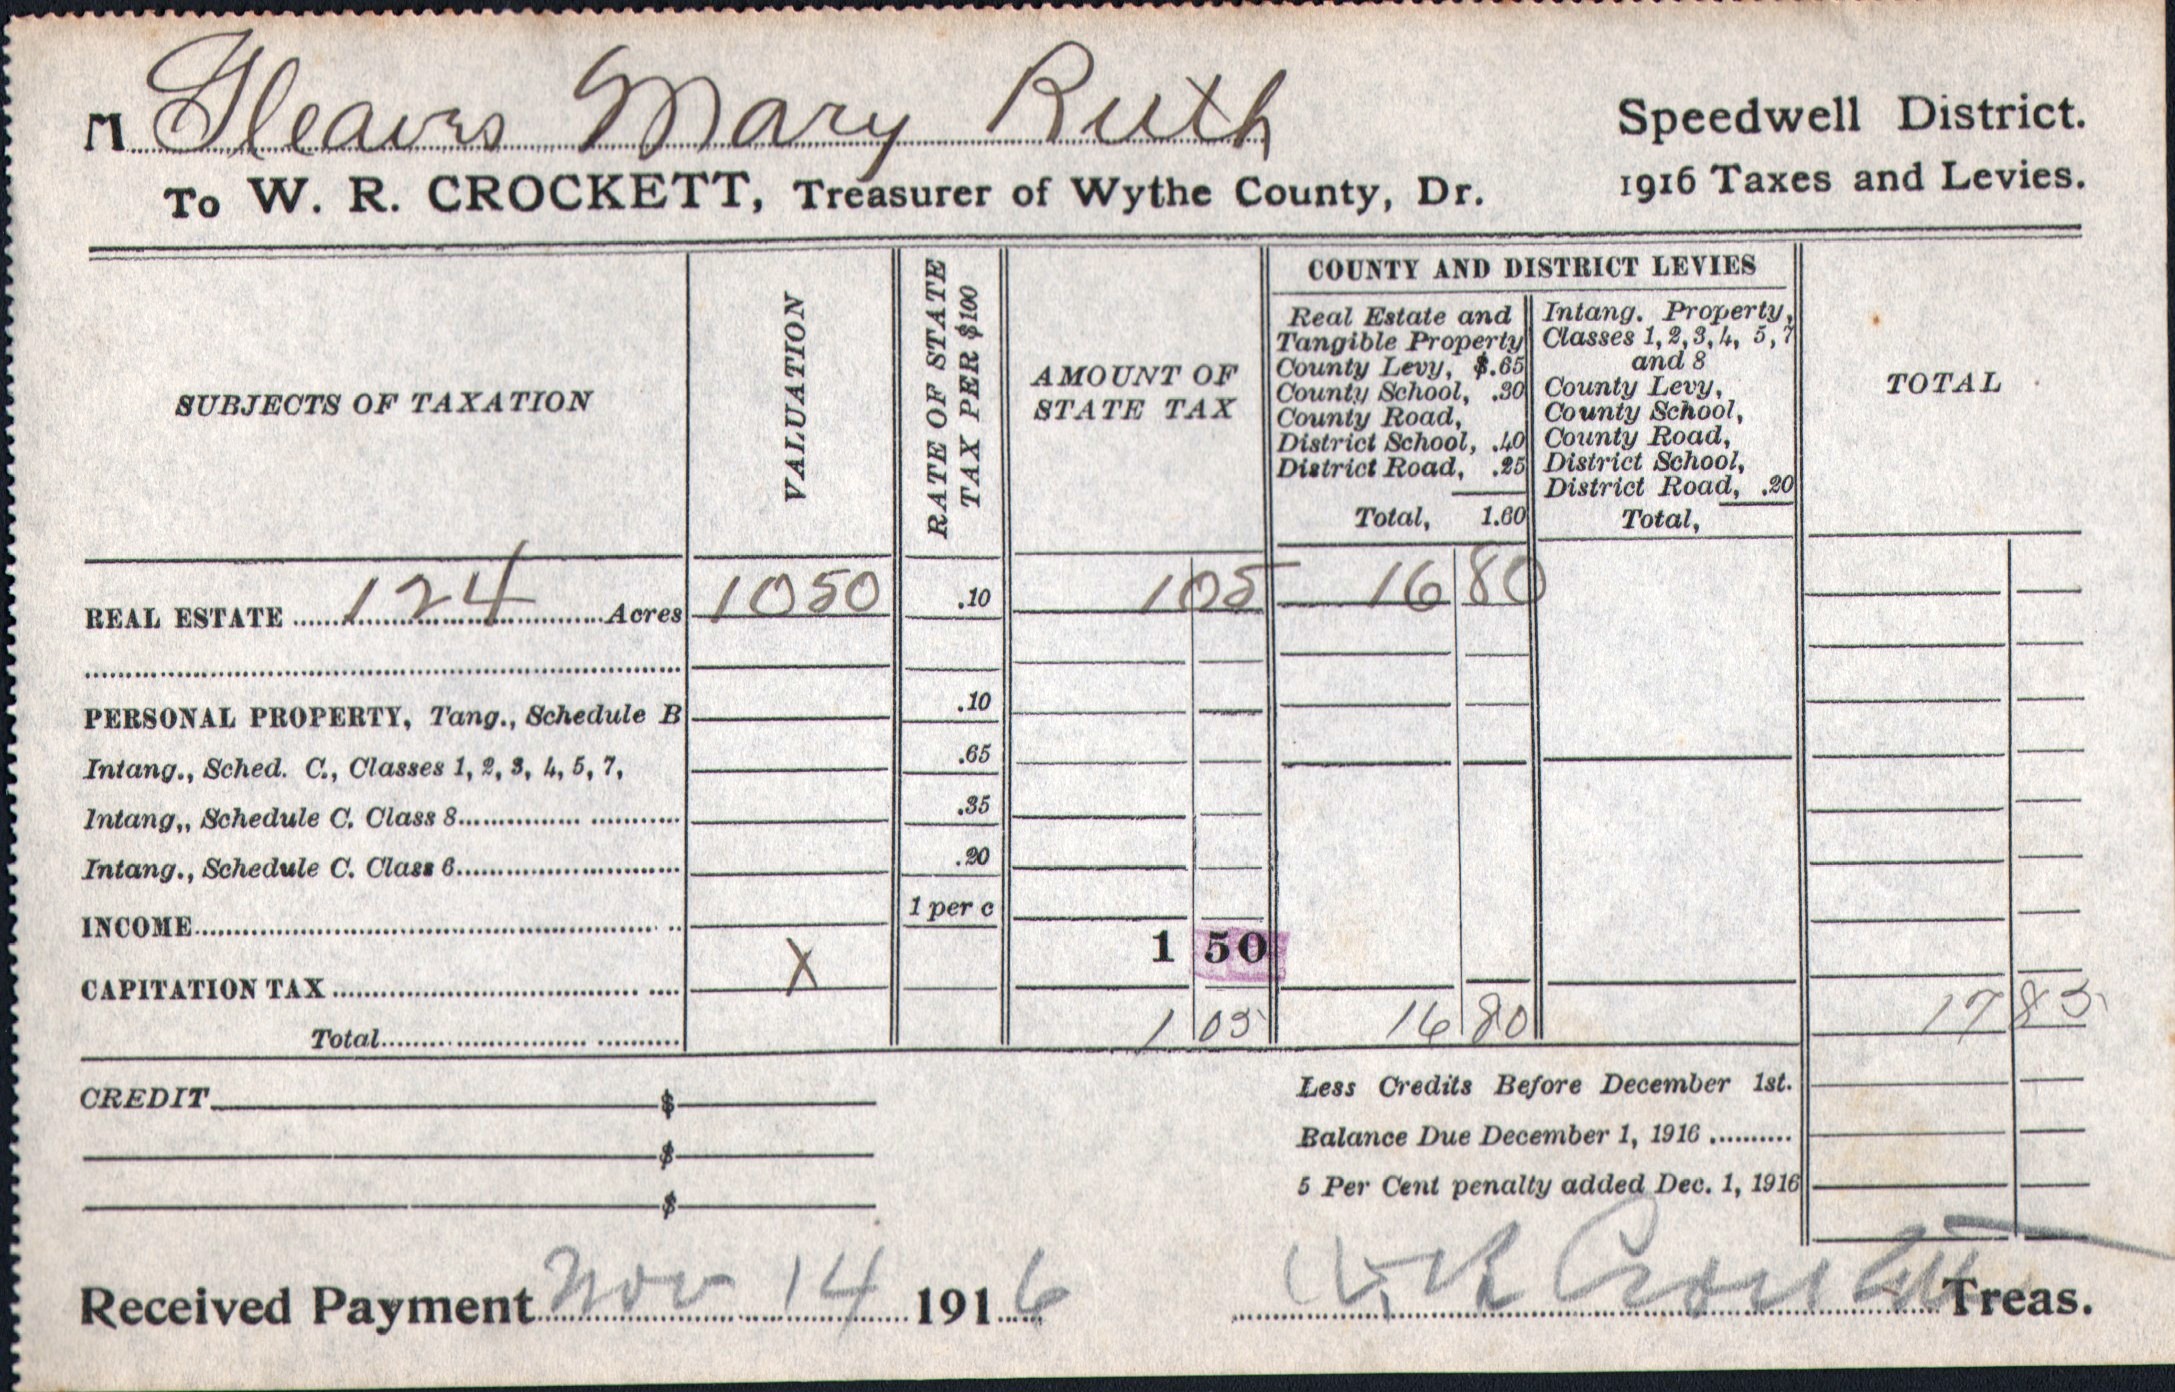 M Gleaves Mary Ruth
Speedwell District.
To W. R. CROCKETT, Treasurer of Wythe County, Dr.
1916 Taxes and Levies.
SUBJECTS OF TAXATION
VALUATION
RATE OF STATE
TAX PER $100
AMOUNT OF
STATE TAX
COUNTY AND DISTRICT LEVIES
Real Estate and
Tangible Property
County Levy, $.65
County School, .30
County Road,
District School, .40
District Road, .25
Total, 1.60
Intang. Property,
Classes 1, 2, 3, 4, 5, 7
and 8
County Levy,
County School,
County Road,
District School,
District Road, .20
Total,
TOTAL
REAL ESTATE 124 Acres 1050 .10 1 05 16 80
PERSONAL PROPERTY, Tang., Schedule B .10
Intang., Sched. C., Classes 1, 2, 3, 4, 5, 7, .65
Intang,, Schedule C. Class 8 .35
Intang., Schedule C. Class 6 .20
INCOME 1 per c
CAPITATION TAX X 1 50
Total 1 05 16 80 17 85
CREDIT $
$
$
Less Credits Before December 1st.
Balance Due December 1, 1916
5 Per Cent penalty added Dec. 1, 1916
Received Payment Nov 14 1916 W. R. Crockett Treas.